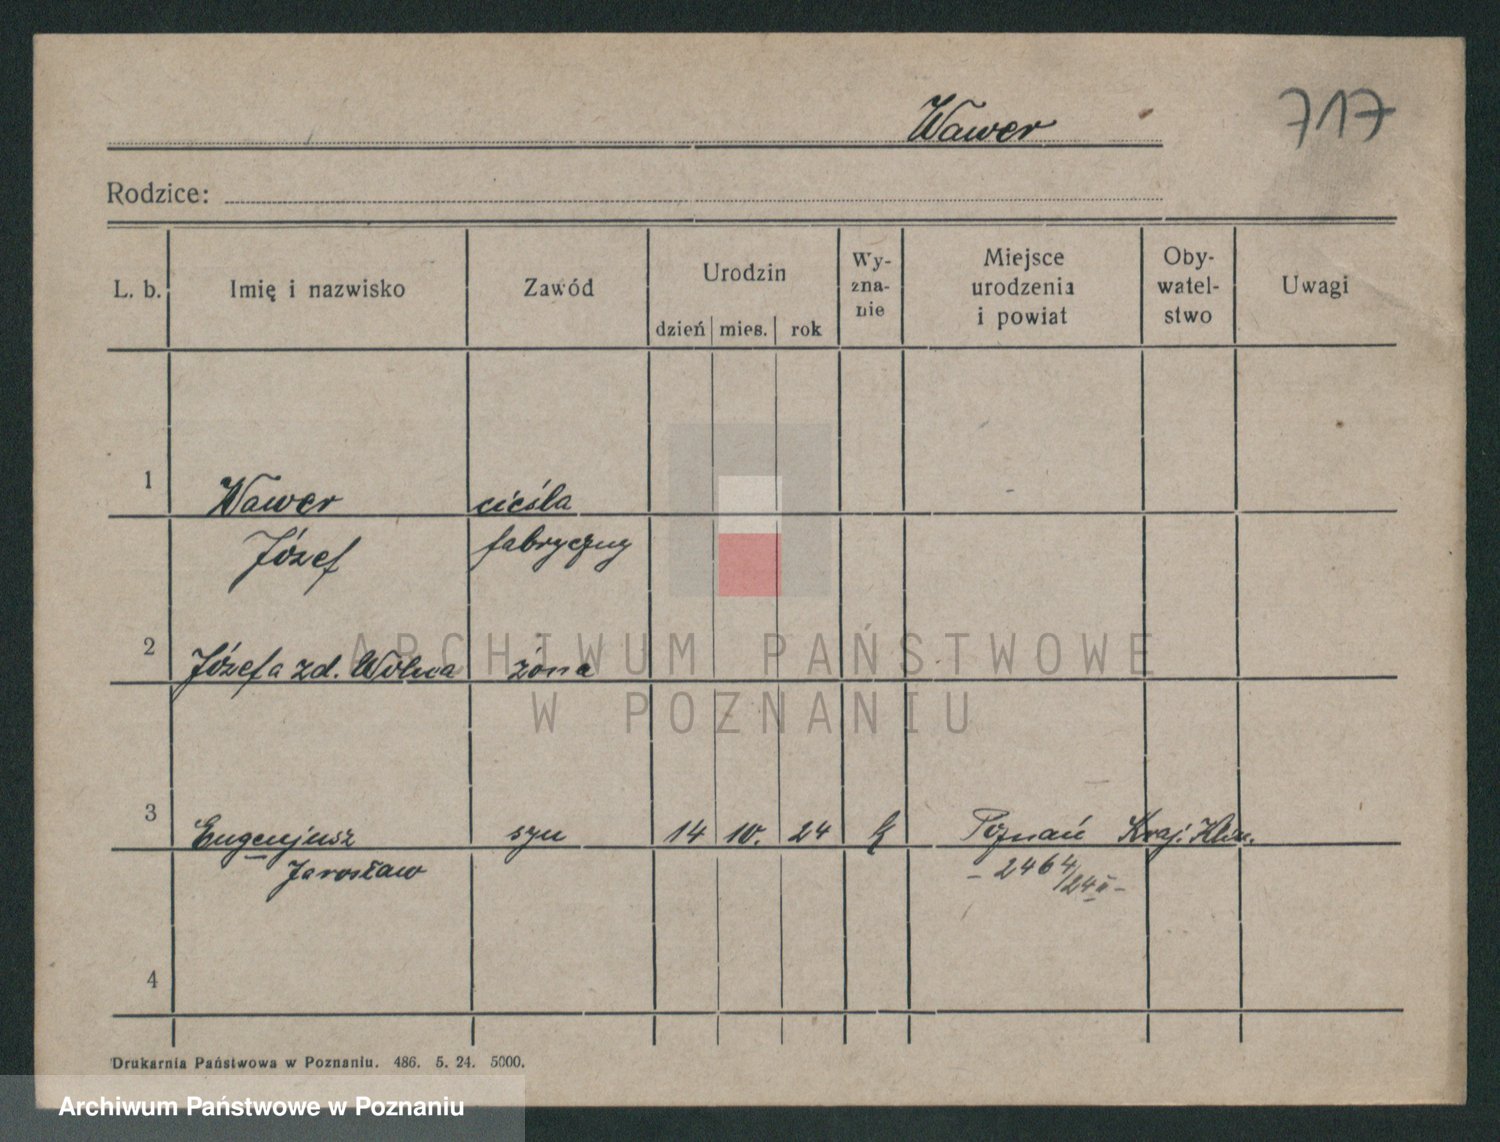 Wawer 717
Rodzice:
L. b. Imię i nazwisko Zawód Urodzin dzień mies. rok Wy-zna-nie Miejsce urodzenia i powiat Oby-watel-stwo Uwagi
1 Wawer cieśla
Józef fabryczny
2 Józefa zd. Wolna żona
ARCHIWUM PAŃSTWOWE
W POZNANIU
3 Eugenjusz syn 14 10. 24 k Poznań Kraj.
Jarosław - 2464/24 II -
4
Drukarnia Państwowa w Poznaniu. 486. 5. 24. 5000.
Archiwum Państwowe w Poznaniu